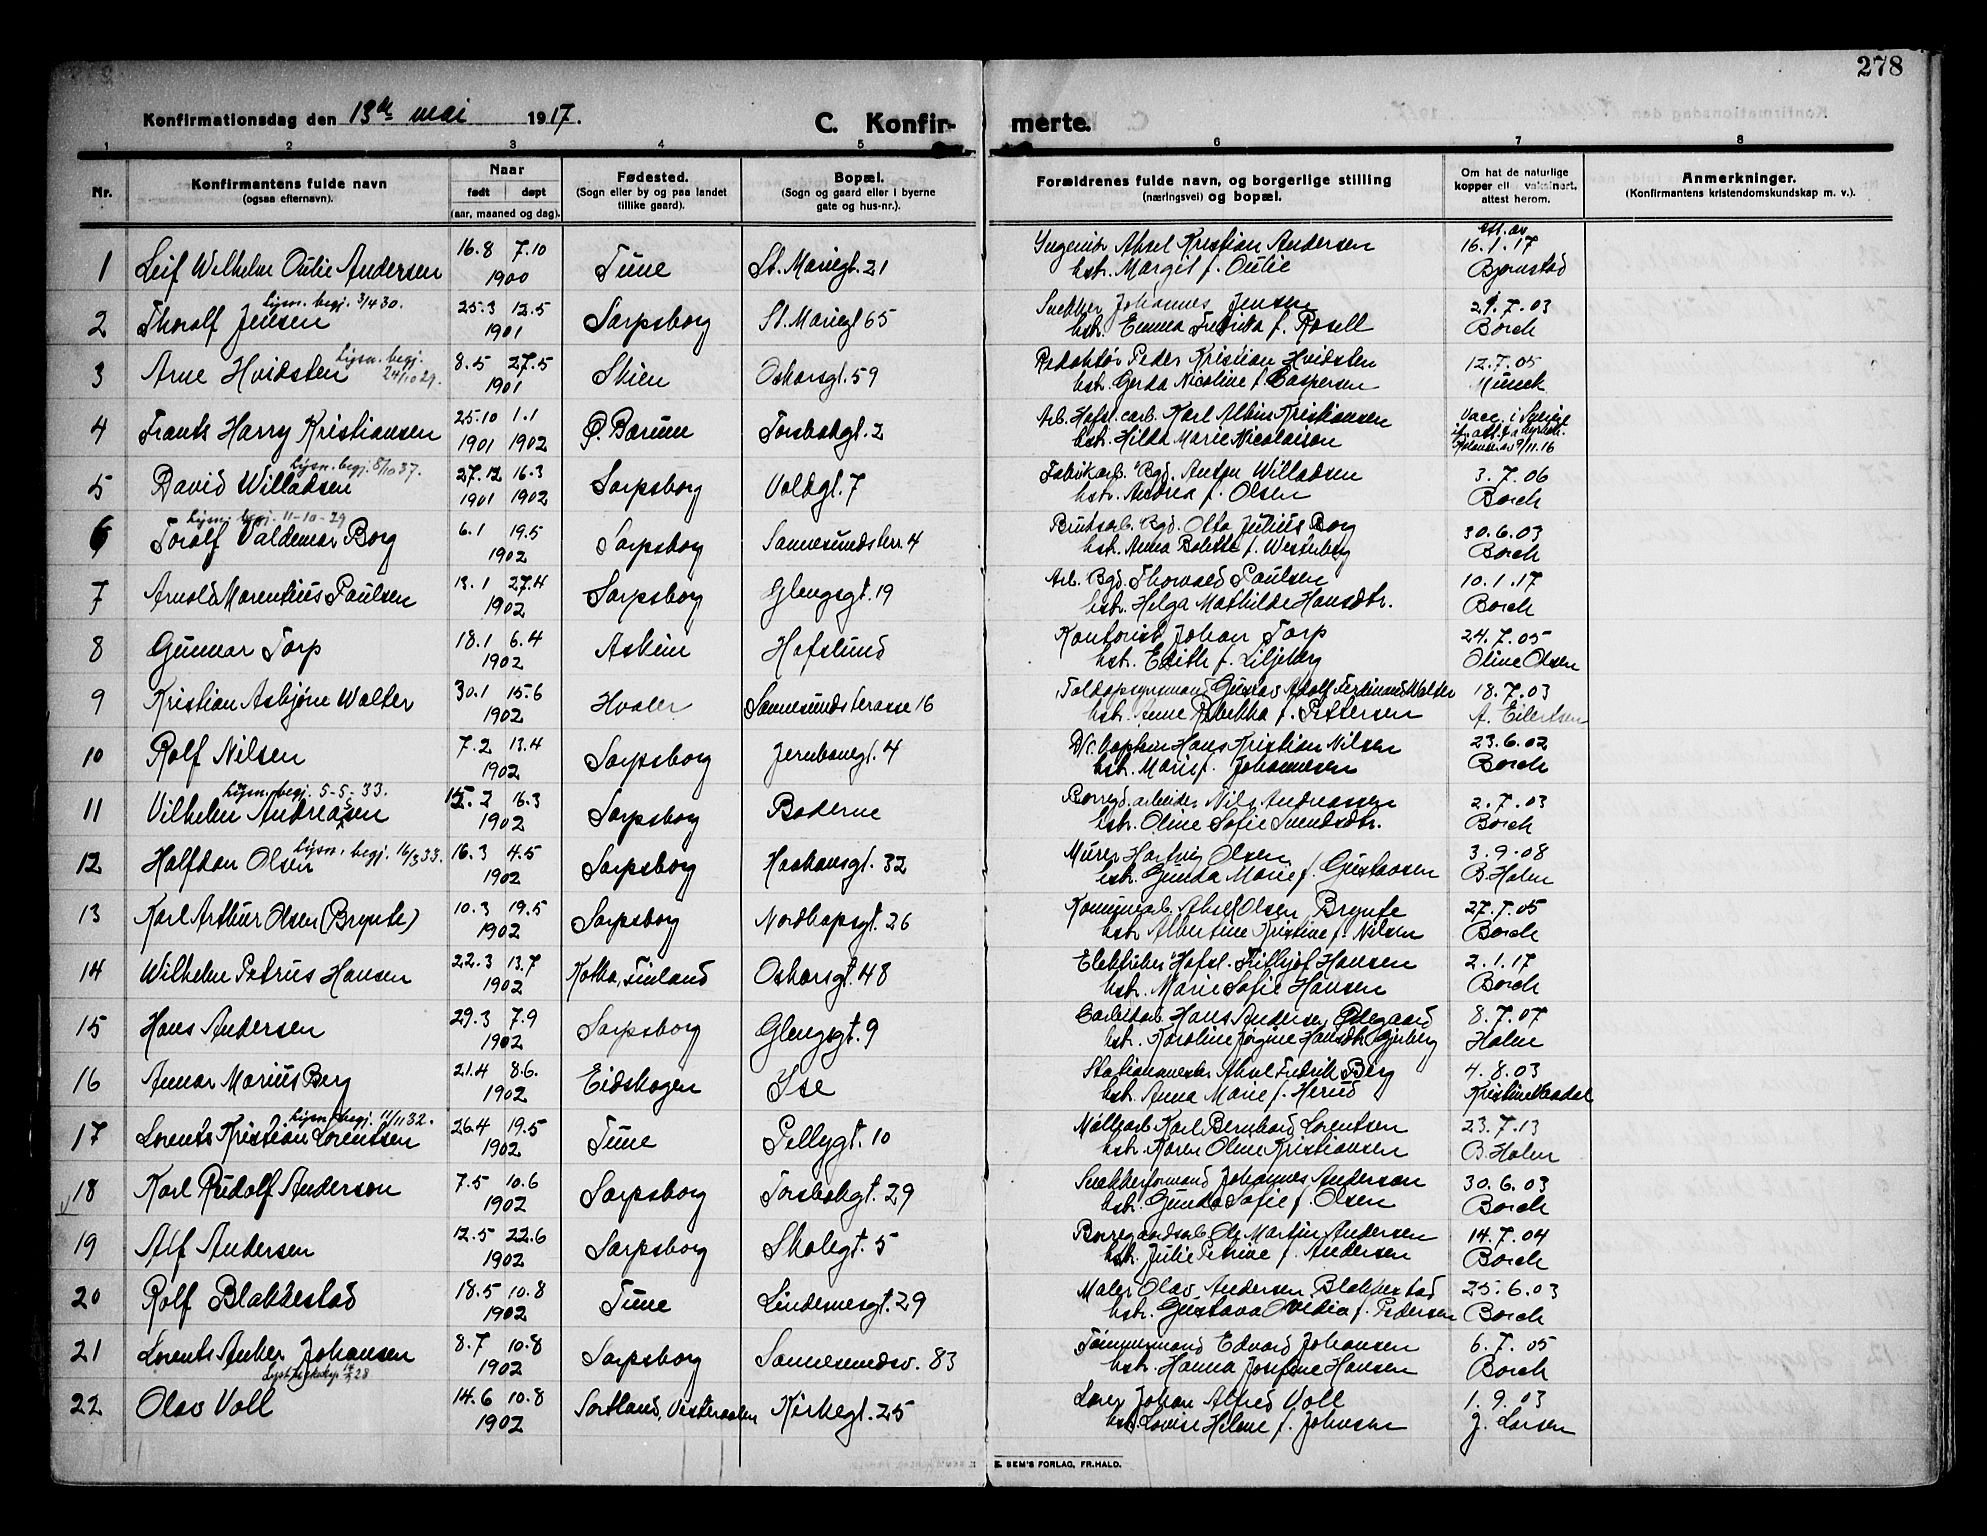 278
Konfirmationsdag den 13de mai 1917.
C. Konfir- merte.
1 2 3 4 5 6 7 8
Nr.
Konfirmantens fulde navn
(ogsaa efternavn).
Naar
født døpt
(aar, maaned og dag).
Fødested.
(Sogn eller by og paa landet
tillike gaard).
Bopæl.
(Sogn og gaard eller i byerne
gate og hus-nr.).
Forældrenes fulde navn, og borgerlige stilling
(næringsvei) og bopæl.
Om hat de naturlige
kopper ell. vaksinert,
attest herom.
Anmerkninger.
(Konfirmantens kristendomskundskap m. v.).
att. av
16.8 7.10 Ingeniør Aksel Kristian Andersen 16.1.17
1 Leif Wilhelm Oulie Andersen 1900 Tune St. Mariegt. 21 hstr. Margit f. Oulie Bjørnstad
Lysn. begj. 3/4 30. 25.3 12.5 Snekker Johannes Jensen 21.7.03
2 Thoralf Jensen 1901 Sarpsborg St. Mariegt 65 hstr. Emma Fredrikka f. Rosell Borch
Lysn. begj. 24/10 29. 8.5 27.5 Redaktør Peder Kristian Hvidsten 12.7.05
3 Arne Hvidsten 1901 Skien Oskarsgt. 59 hstr. Gerda Nicoline f. Caspersen Munch
25.10 1.1 Arb. Hafsl. carb. Karl Albin Kristiansen Vacc. i Sverige
4 Frants Harry Kristiansen 1901 1902 Ø. Bærum Torsbekgt. 2 hstr. Hilda Marie Nicolaison 9/11.16
Lysn. begj. 8/10 37. 27.12 16.3 Fabrikarb. Bgd. Anton Willadsen 3.7.06
5 David Willadsen 1901 1902 Sarpsborg Voldgt. 7 hstr. Andrea f. Olsen Borch
Lysn. begj. 11-10-29 6.1 19.5 Bruksarb. Bgd. Otto Julius Borg 30.6.03
6 Toralf Valdemar Borg 1902 Sarpsborg Sannesundsterr. 4 hstr. Anna Bolette f. Westerberg Borch
13.1 27.4 Arb. Bgd. Thorvald Paulsen 10.1.17
7 Arnold Marentius Paulsen 1902 Sarpsborg Glengsgt. 19 hstr. Helga Mathilde Hansdtr. Borch
18.1 6.4 Kontorist Johan Torp 24.7.05
8 Gunnar Torp 1902 Askim Hafslund hstr. Edith f. Liljeberg Oline Olsen
30.1 15.6 Toldopsynsmand Gustav Adolf Ferdinand Walter 18.7.03
9 Kristian Asbjørn Walter 1902 Hvaler Sannesundsterasse 16 hstr. Anne Rebekka f. Pettersen A. Eilertsen
7.2 13.4 D/S. kaptein Hans Kristian Nilsen 23.6.02
10 Rolf Nilsen 1902 Sarpsborg Jernbanegt. 4 hstr. Marie f. Johannesen Borch
Lysn. begj. 5-5-33. 15.2 16.3 Borregd. arbeider Nils Andreassen 2.7.03
11 Vilhelm Andreassen 1902 Sarpsborg Baderne hstr. Oline Sofie Svendsdtr. Borch
Lysn. begj. 16/3 33. 16.3 4.5 Murer Hartvig Olsen 3.9.08
12 Halfdan Olsen 1902 Sarpsborg Haakonsgt. 32 hstr. Gunda Marie f. Gustavsen B. Holm
10.3 19.5 Kommunearb. Aksel Olsen Brynte 27.7.05
13 Karl Arthur Olsen (Brynte) 1902 Sarpsborg Nordkapsgt. 26 hstr. Albertine Kristine f. Nilsen Borch
22.3 13.7 Elektriker Hafsl. Frithjof Hansen 2.1.17
14 Wilhelm Petrus Hansen 1902 Kotka, Finland Oskarsgt. 48 hstr. Marie Sofie Hansen Borch
29.3 7.9 Carbidarb. Hans Andersen Ødegaard 8.7.07
15 Hans Andersen 1902 Sarpsborg Glengsgt. 9 hstr. Karoline Jørgine Hansdtr. Gjerberg Holm
21.4 8.6. Stationsmester Aksel Fredrik Berg 4.8.03
16 Annar Marius Berg 1902 Eidskogen Ise hstr. Anna Marie f. Herud Kristine Vaadal
Lysn. begj. 11/11 32. 26.4 19.5 Møllearb Karl Bernhard Lorentsen 23.7.13
17 Lorents Kristian Lorentsen 1902 Tune Pellygt. 10 hstr. Karen Oline Kristiansen B. Holm
7.5 10.6 Snekkerformand Johannes Anderson 30.6.03
18 Karl Rudolf Anderson 1902 Sarpsborg Torsbekgt. 29 hstr. Gunda Sofie f. Olsen Borch
12.5 22.6 Borregaardsarb Ole Martin Andersen 14.7.04
19 Alf Andersen 1902 Sarpsborg Skolegt. 5 hstr. Julie Petrine f. Andersen Borch
18.5 10.8 Maler Olav Andersen Blakkestad 25.6.03
20 Rolf Blakkestad 1902 Tune Lindemesgt. 29 hstr. Gustava Ovidia f. Pedersen Borch
8.7 10.8 Tømmermand Edvard Johansen 6.7.05
21 Lorents Anker Johansen 1902 Sarpsborg Sannesundsv. 83 hstr. Hanna Josefine Hansen Borch
14.6 10.8 Lærer Johan Alfred Voll 1.9.03
22 Olav Voll 1902 Sortland, Vesteraalen Kirkegt. 25 hstr. Lovise Helene f. Johnsen J. Larsen
E. SEM'S FORLAG, FR.HALD.